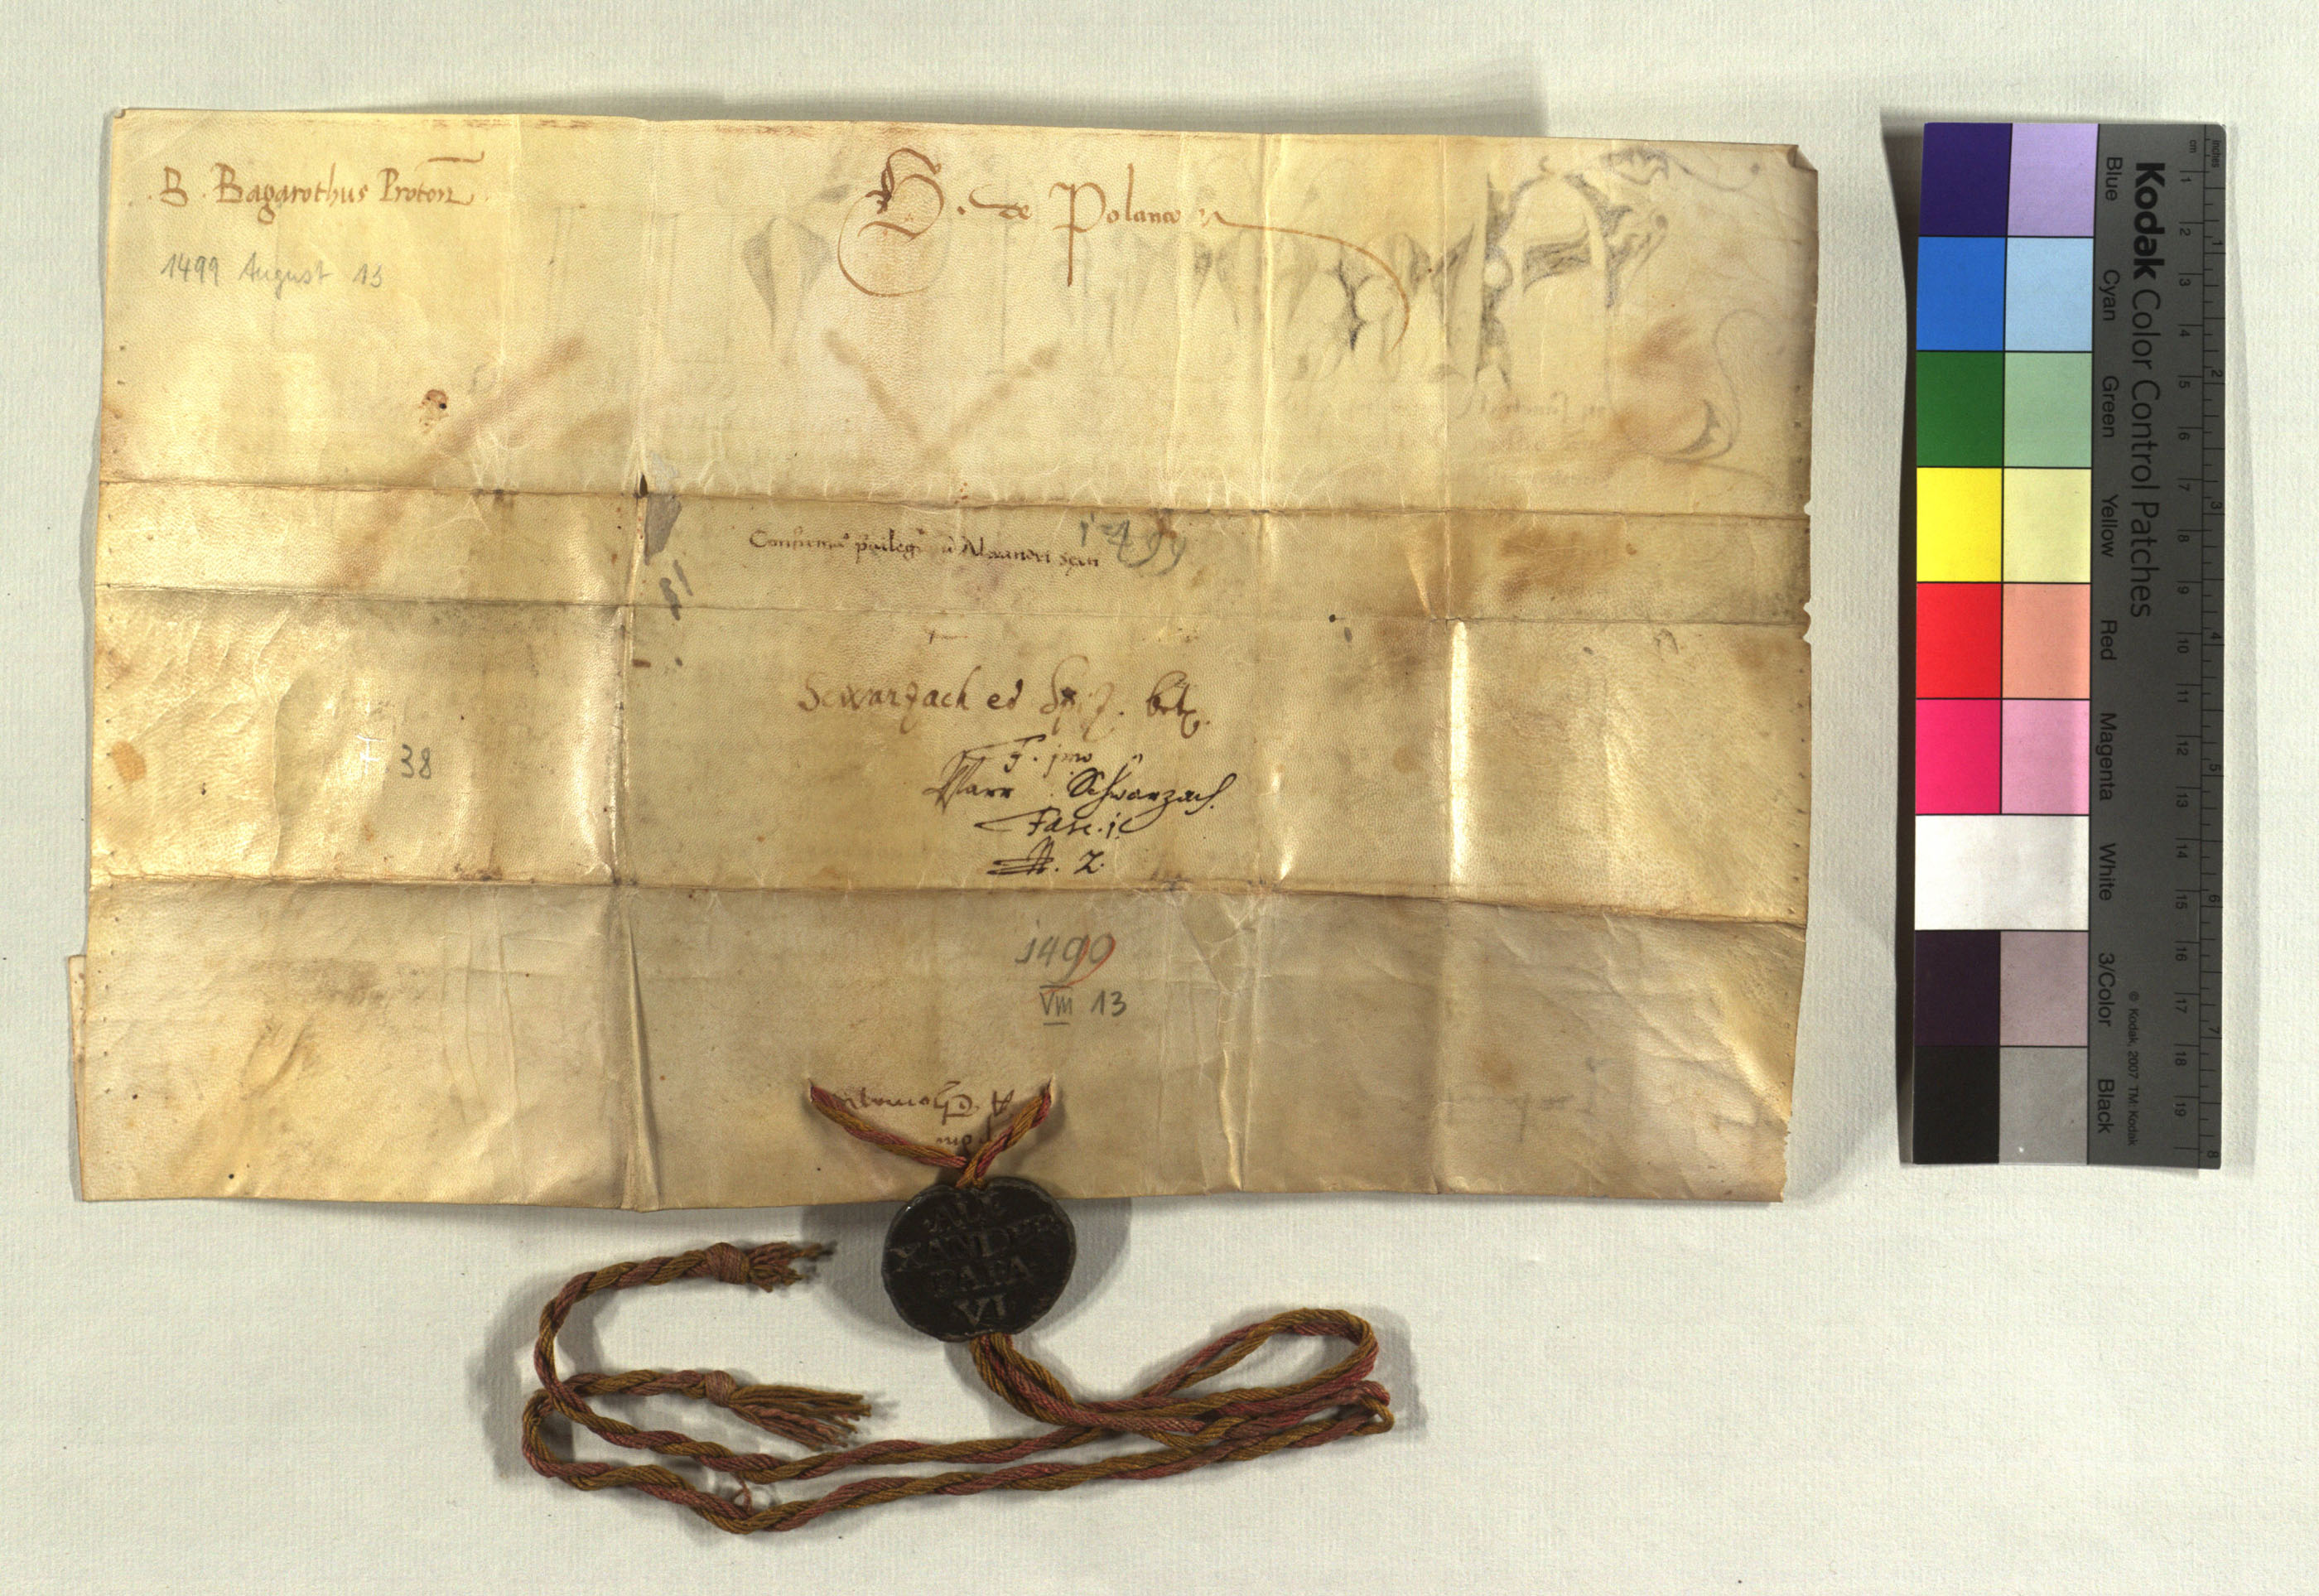 B. Bagarothus Proton
G. de Polanco
1499 August 13
1499
Scwarzach ed
38
F. pro
Pfarr Schwarzach.
Fasc. i.
N. 2.
1499
VIII 13
A
ALE
XANDER
PAPA
VI
Kodak Color Control Patches
Blue Cyan Green Yellow Red Magenta White 3/Color Black
© Kodak, 2007 TM: Kodak
inches 1 2 3 4 5 6 7 8
cm 1 2 3 4 5 6 7 8 9 10 11 12 13 14 15 16 17 18 19